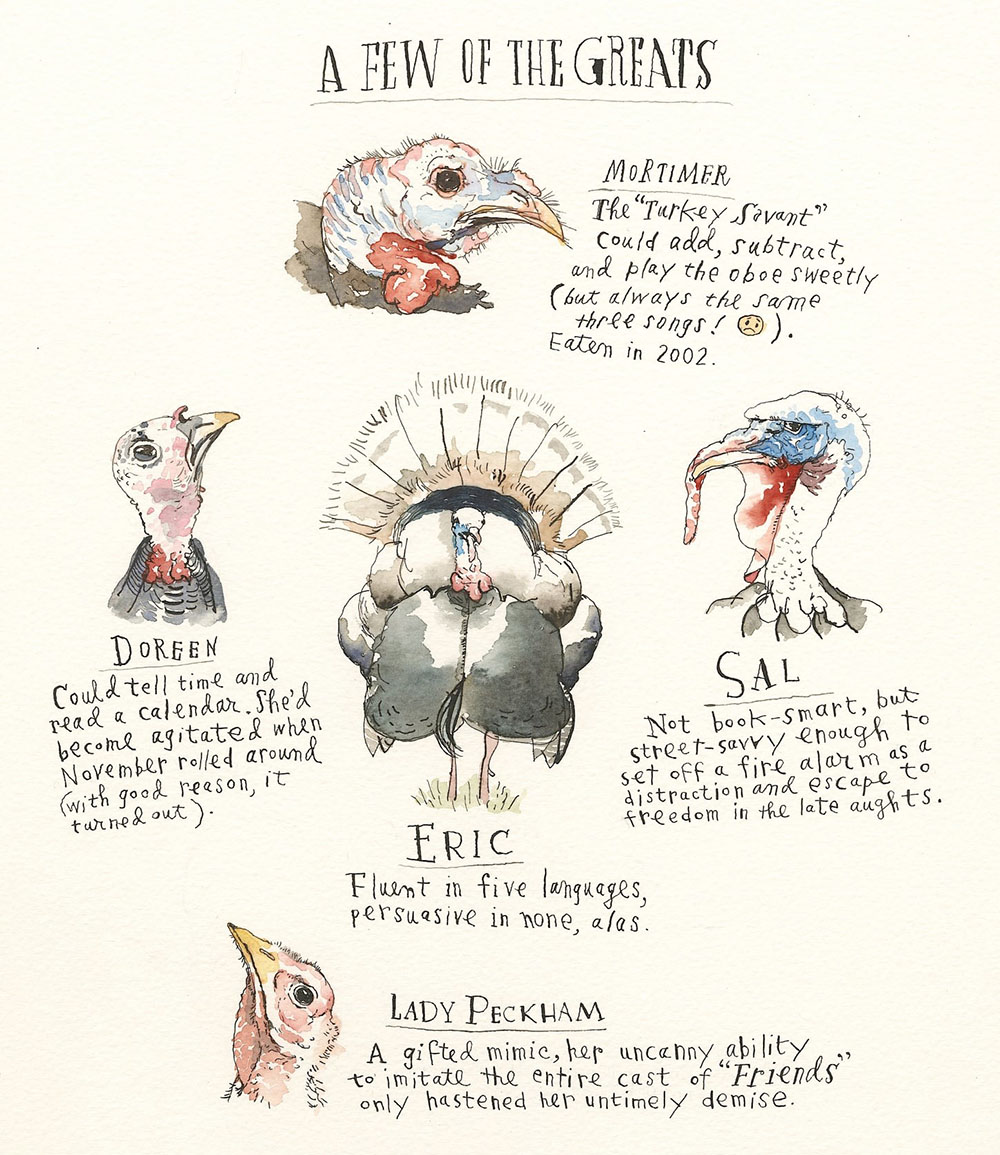 A FEW OF THE GREATS
MORTIMER
The "Turkey Savant"
could add, subtract,
and play the oboe sweetly
(but always the same
three songs! ☹).
Eaten in 2002.
DOREEN
Could tell time and
read a calendar. She'd
become agitated when
November rolled around
(with good reason, it
turned out).
SAL
Not book-smart, but
street-savvy enough to
set off a fire alarm as a
distraction and escape to
freedom in the late aughts.
ERIC
Fluent in five languages,
persuasive in none, alas.
LADY PECKHAM
A gifted mimic, her uncanny ability
to imitate the entire cast of "Friends"
only hastened her untimely demise.